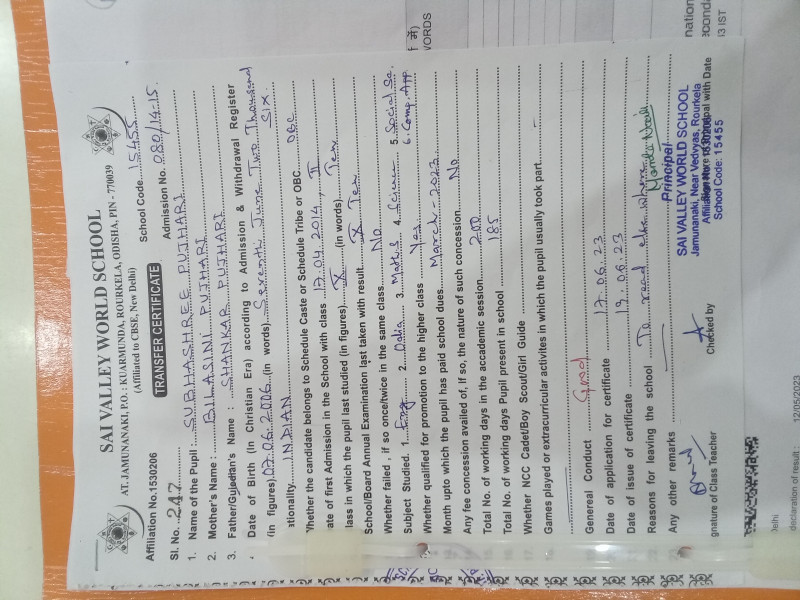 SAI VALLEY WORLD SCHOOL
AT. JAMUNANAKI, P.O. : KUARMUNDA, ROURKELA, ODISHA, PIN - 770039
(Affiliated to CBSE, New Delhi)
Affiliation No.1530206
TRANSFER CERTIFICATE
School Code 15455
Sl. No. 247
Admission No. 080/14-15.
1. Name of the Pupil : SUBHASHREE PUJHARI
2. Mother's Name : BILASINI PUJHARI
3. Father/Gujedian's Name : SHANKAR PUJHARI
Date of Birth (in Christian Era) according to Admission & Withdrawal Register
(in figures) 07.06.2006 (in words) Seventh June Two Thousand
Six
ationality INDIAN
Whether the candidate belongs to Schedule Caste or Schedule Tribe or OBC OBC
ate of first Admission in the School with class 17.04.2014, II
lass in which the pupil last studied (in figures) X (in words) Ten
School/Board Annual Examination last taken with result X Ten
Whether failed , if so once/twice in the same class No
Subject Studied. 1 Eng 2. Odia 3. Maths 4. Science 5. Social Sc.
6. Comp. App
Whether qualified for promotion to the higher class Yes
Month upto which the pupil has paid school dues March - 2023
Any fee concession availed of, if so, the nature of such concession No
Total No. of working days in the accademic session 200
Total No. of working days Pupil present in school 185
Whether NCC Cadet/Boy Scout/Girl Guide
Games played or extracurricular activites in which the pupil usually took part
Genereal Conduct Good
Date of application for certificate 17.06.23
Date of issue of certificate 19.06.23
Reasons for leaving the school To read else where
Any other remarks
gnature of Class Teacher
Checked by
Principal with Date
Principal
SAI VALLEY WORLD SCHOOL
Jamunanaki, Near Vedvyas, Rourkela
Affiliation No : 1530206
School Code: 15455
WORDS
declaration of result : 12/05/2023
elhi
nation
econda
3 IST